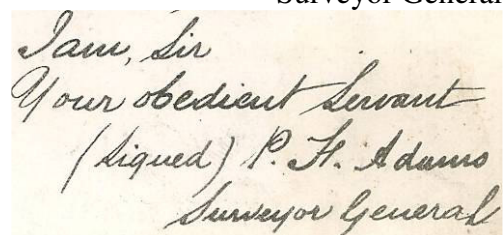 Surveyor General
I am, Sir
Your obedient Servant
(Signed) P. F. Adams
Surveyor General